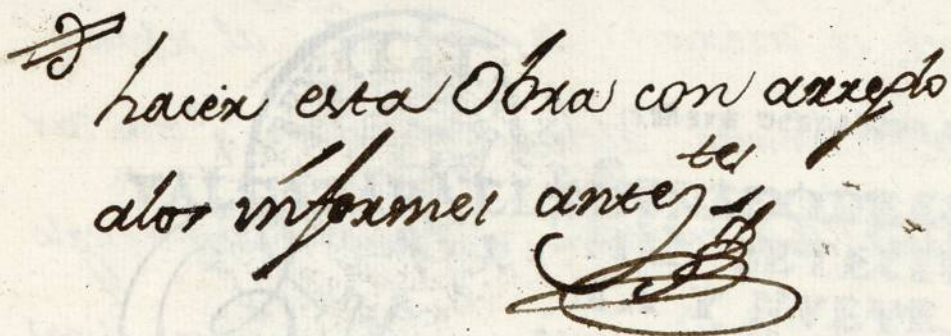 hacer esta Obra con arreglo
alos informes antetes